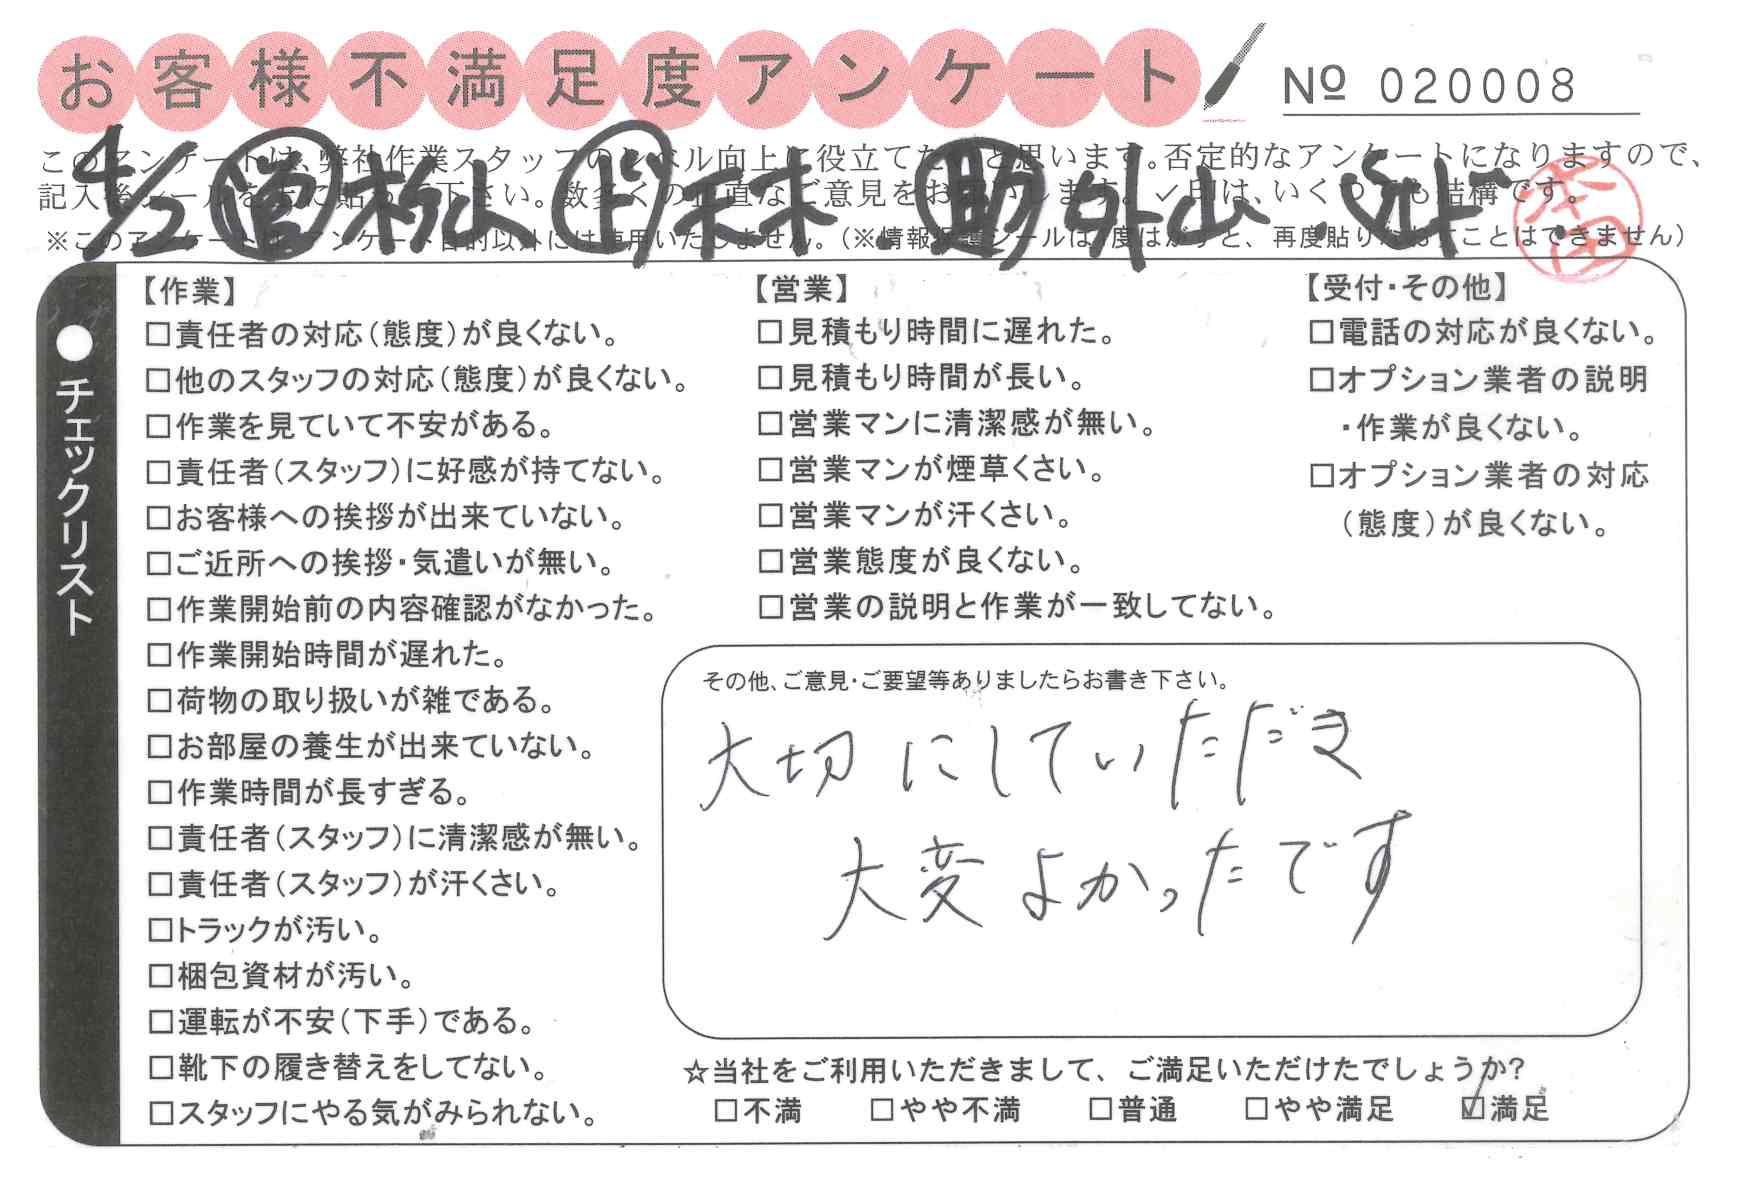 お客様不満足度アンケート
№ 020008
このアンケートは、弊社作業スタッフのレベル向上に役立てたいと思います。否定的なアンケートになりますので、
記入後シールを上に貼って下さい。数多くの正直なご意見をお願いします。✓印は、いくつでも結構です。
※このアンケートは、アンケート目的以外には使用いたしません。（※情報保護シールは1度はがすと、再度貼りなおすことはできません）
4/2 営 松山 ド 末木 . 助 外山 .
●チェックリスト
【作業】
□責任者の対応（態度）が良くない。
□他のスタッフの対応（態度）が良くない。
□作業を見ていて不安がある。
□責任者（スタッフ）に好感が持てない。
□お客様への挨拶が出来ていない。
□ご近所への挨拶・気遣いが無い。
□作業開始前の内容確認がなかった。
□作業開始時間が遅れた。
□荷物の取り扱いが雑である。
□お部屋の養生が出来ていない。
□作業時間が長すぎる。
□責任者（スタッフ）に清潔感が無い。
□責任者（スタッフ）が汗くさい。
□トラックが汚い。
□梱包資材が汚い。
□運転が不安（下手）である。
□靴下の履き替えをしてない。
□スタッフにやる気がみられない。
【営業】
□見積もり時間に遅れた。
□見積もり時間が長い。
□営業マンに清潔感が無い。
□営業マンが煙草くさい。
□営業マンが汗くさい。
□営業態度が良くない。
□営業の説明と作業が一致してない。
【受付・その他】
□電話の対応が良くない。
□オプション業者の説明
・作業が良くない。
□オプション業者の対応
（態度）が良くない。
その他、ご意見・ご要望等ありましたらお書き下さい。
大切にしていただき
大変よかったです
☆当社をご利用いただきまして、ご満足いただけたでしょうか？
□不満 □やや不満 □普通 □やや満足 ☑満足